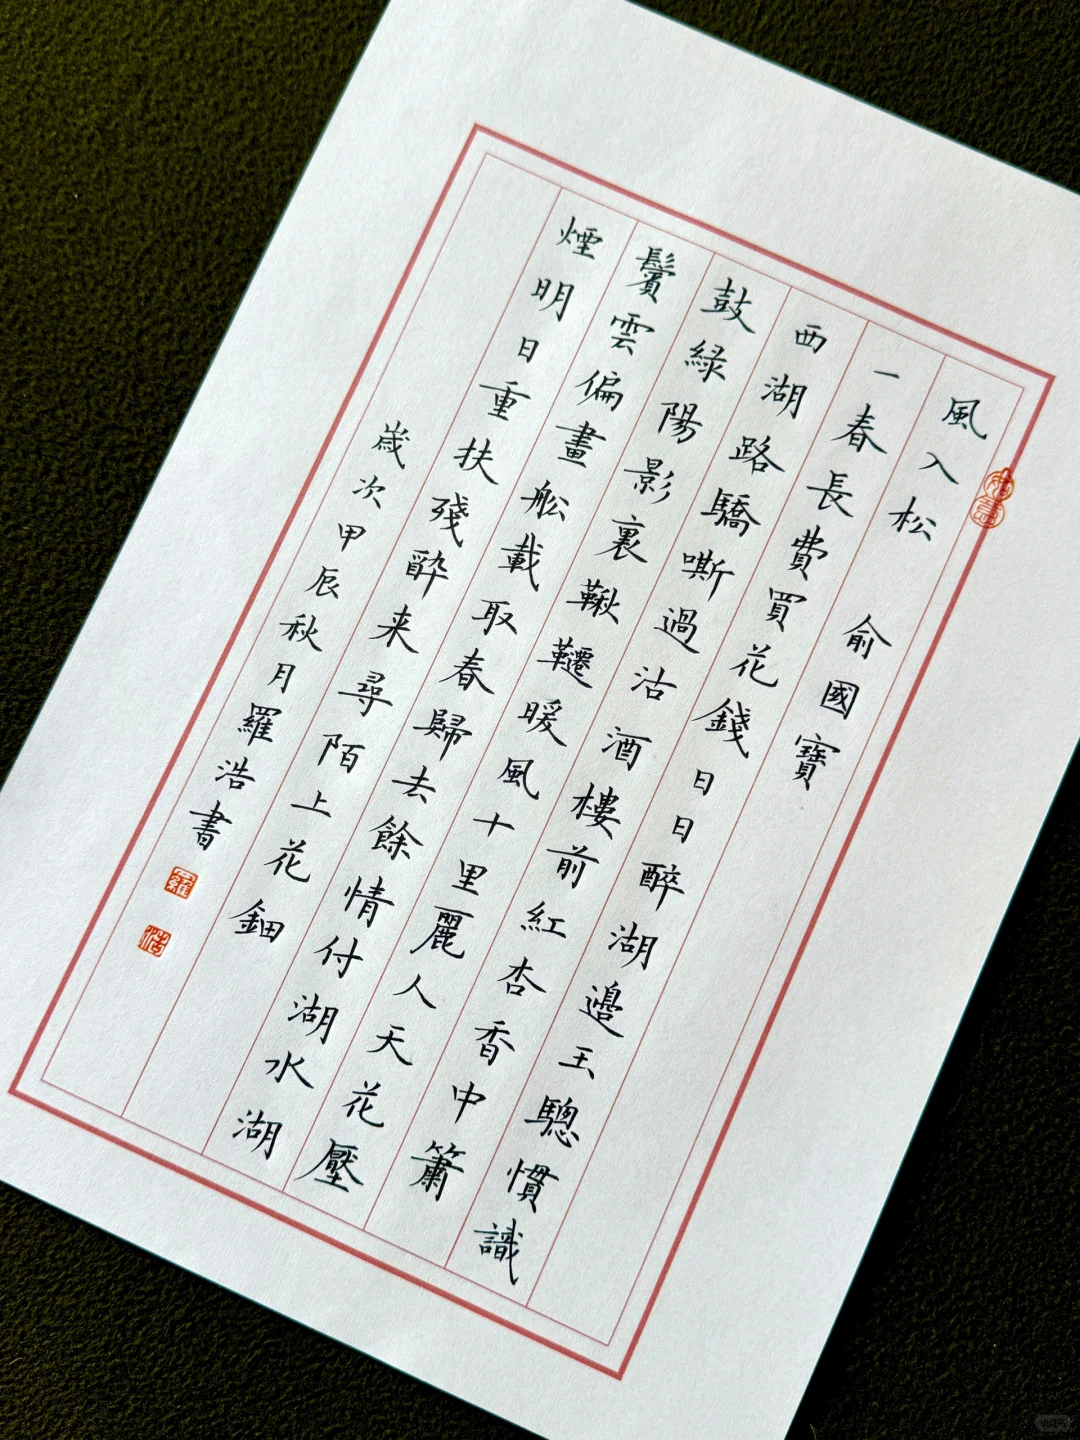 風入松 俞國寶
一春長費買花錢日日醉湖邊玉驄慣識
西湖路驕嘶過沽酒樓前紅杏香中簫
鼓緑陽影裏鞦韆暖風十里麗人天花壓
鬢雲偏畫舩載取春歸去餘情付湖水湖
煙明日重扶殘醉来尋陌上花鈿
嵗次甲辰秋月羅浩書
羅
浩